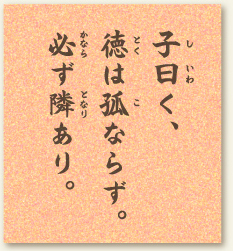 子曰く、
徳は孤ならず。
必ず隣あり。